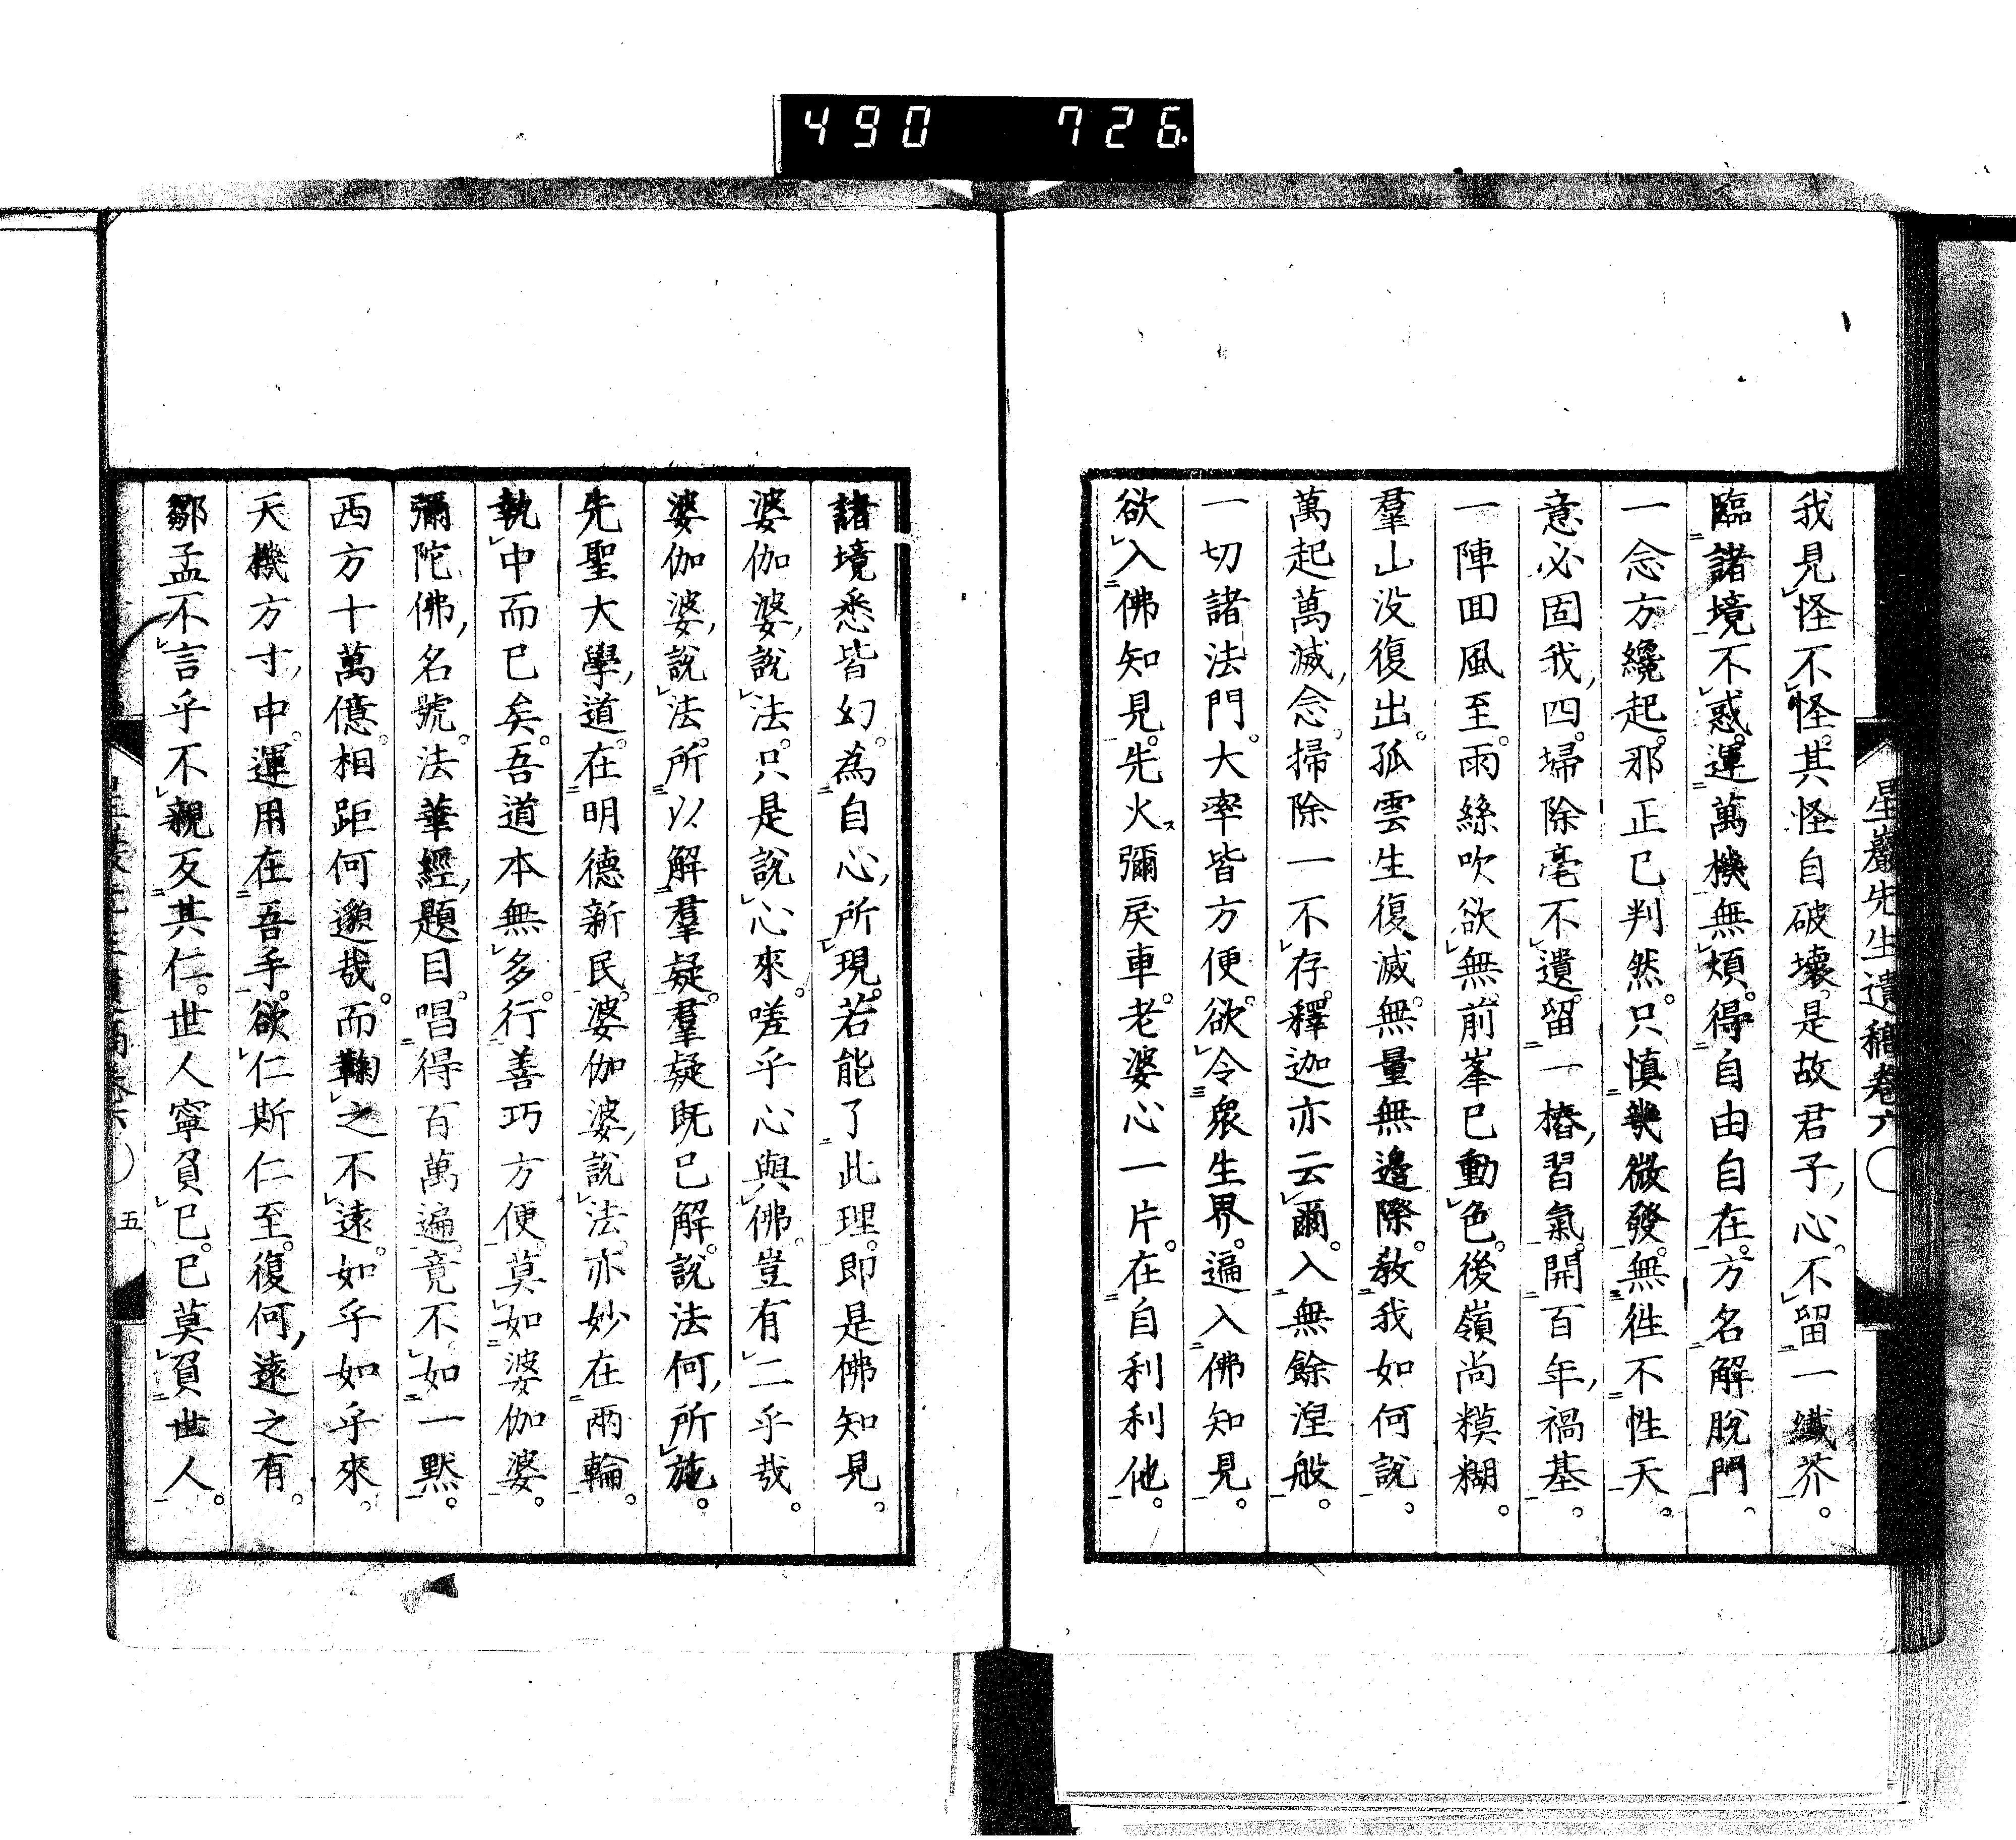 490 726
星巖先生遺稿卷六
我見怪不怪。其怪自破壞。是故君子心。不留一纖芥。
臨諸境不惑。運萬機無煩。得自由自在。方名解脫門。
一念方纔起。邪正已判然。只慎幾微發。無往不性天。
意必固我四。埽除毫不遺。留一樁習氣。開百年禍基。
一陣回風至。雨絲吹欲無。前峯已動色。後嶺尚糢糊。
羣山没復出。孤雲生復滅。無量無邊際。教我如何說。
萬起萬滅念。掃除一不存。釋迦亦云爾。入無餘涅般。
一切諸法門。大率皆方便。欲令衆生界。遍入佛知見。
欲入佛知見。先火彌戾車。老婆心一片。在自利利他。
諸境悉皆幻。為自心所現。若能了此理。即是佛知見。
婆伽婆說法。只是說心來。嗟乎心與佛。豈有二乎哉。
婆伽婆說法。所以解羣疑。羣疑既已解。說法何所施。
先聖大學道。在明德新民。婆伽婆說法。亦妙在兩輪。
執中而已矣。吾道本無多。行善巧方便。莫如婆伽婆。
彌陀佛名號。法華經題目。唱得百萬遍。竟不如一默。
西方十萬億。相距何邈哉。而鞠之不遠。如乎如乎來。
天機方寸中。運用在吾手。欲仁斯仁至。復何遠之有。
鄒孟不言乎。不親反其仁。世人寧負已。已莫負世人。
五